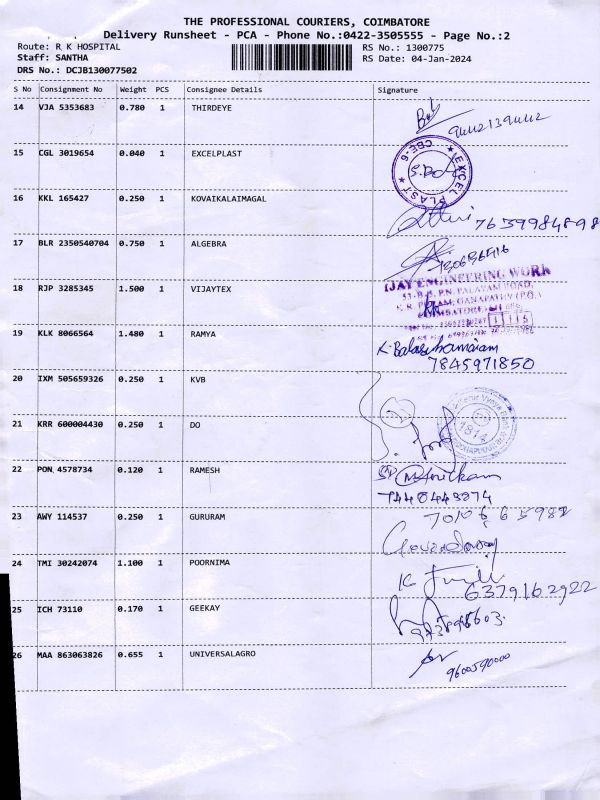 THE PROFESSIONAL COURIERS, COIMBATORE
Delivery Runsheet - PCA - Phone No.:0422-3505555 - Page No.:2
Route: R K HOSPITAL
RS No.: 1300775
Staff: SANTHA
RS Date: 04-Jan-2024
DRS No.: DCJB130077502
S No Consignment No Weight PCS Consignee Details Signature
14 VJA 5353683 0.780 1 THIRDEYE
15 CGL 3019654 0.040 1 EXCELPLAST
EXCEL PLAST CBE-6
16 KKL 165427 0.250 1 KOVAIKALAIMAGAL
7659984898
17 BLR 2350540704 0.750 1 ALGEBRA
18 RJP 3285345 1.500 1 VIJAYTEX
IJAY ENGINEERING WORK
19 KLK 8066564 1.480 1 RAMYA
K. Balasubramaiam
7845971850
20 IXM 505659326 0.250 1 KVB
21 KRR 600004430 0.250 1 DO
22 PON 4578734 0.120 1 RAMESH
7440448874
23 AWY 114537 0.250 1 GURURAM
24 TMI 30242074 1.100 1 POORNIMA
6379162922
25 ICH 73110 0.170 1 GEEKAY
26 MAA 863063826 0.655 1 UNIVERSALAGRO
9600590000